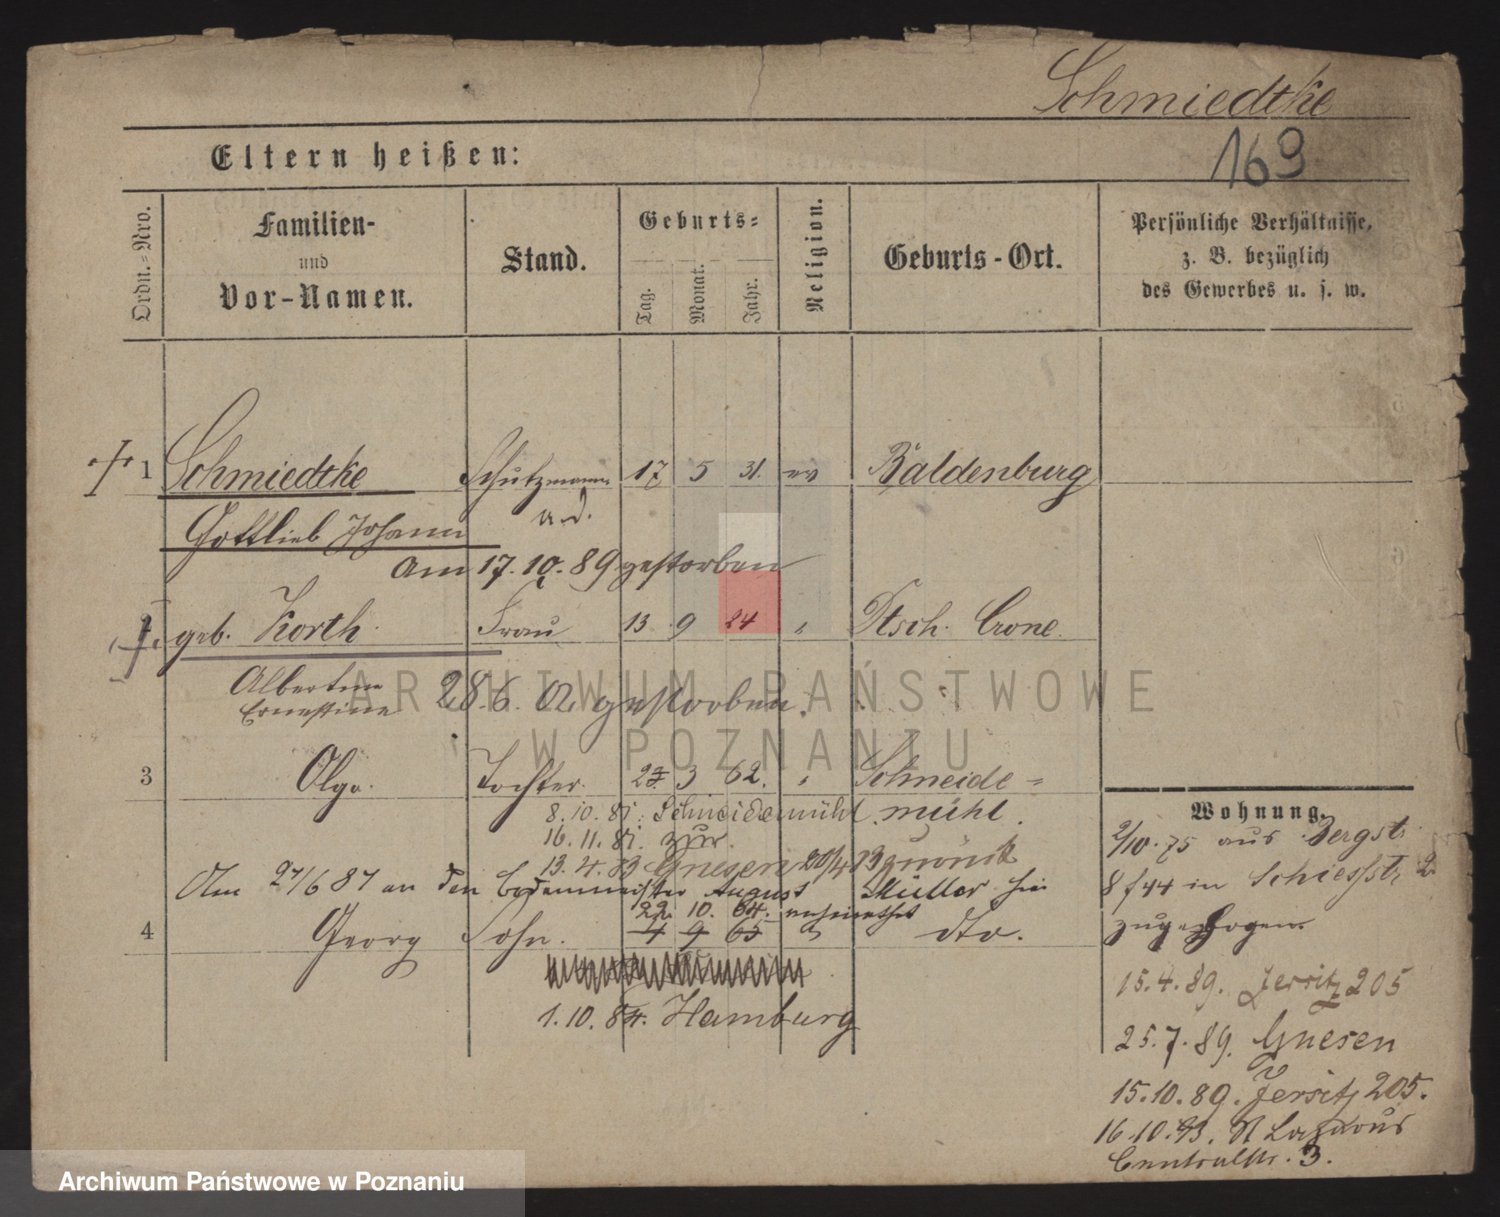 Schmiedtke
169
Eltern heißen:
Ordn.-Nro.
Familien-
und
Vor-Namen.
Stand.
Geburts-
Tag.
Monat.
Jahr.
Religion.
Geburts-Ort.
Persönliche Verhältnisse,
z. B. bezüglich
des Gewerbes u. s. w.
1 Schmiedtke Schutzmann 17 5 31. ev Baldenburg
a. d.
Gottlieb Johann
am 17.10.89 gestorben
2 geb. Korth Frau 13 9 24 " Dtsch. Crone
Albertine 28.6. 02 gestorben.
Ernestine
3 Olga. Tochter. 27. 3 62. " Schneide-
8.10.81. Schneidemühl mühl.
16.11.81. zur.
13.4.83 Gnesen 20/4 83 zurück
Am 27/6 87 an den Bodenmeister August Müller hier
22. 10. 64. verheirathet
4 Georg Sohn. 4 9 65 " dto.
1.10.84. Hamburg
Wohnung.
2/10.75 aus Bergstr.
8/44 in Schiesstr. 2.
zugezogen.
15.4.89. Jersitz 205
25.7.89. Gnesen
15.10.89. Jersitz 205.
16.10.93. St Lazarus
Centralstr. 3.
ARCHIWUM PAŃSTWOWE
W POZNANIU
Archiwum Państwowe w Poznaniu